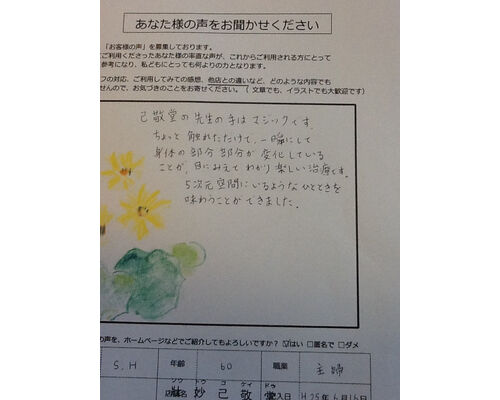 あなた様の声をお聞かせください
「お客様の声」を募集しております。
ご利用くださったあなた様の率直な声が、これからご利用される方にとって
参考になり、私どもにとっても何よりの力となります。
フの対応、ご利用してみての感想、他店との違いなど、どのような内容でも
せんので、お気づきのことをお寄せください。（ 文章でも、イラストでも大歓迎です）
己敬堂の先生の手はマジックです。
ちょっと触れただけで、一瞬にして
身体の部分部分が変化している
ことが、目にみえてわかり楽しい治療です。
5次元空間にいるようなひとときを
味わうことができました。
の声を、ホームページなどでご紹介してもよろしいですか？ ☑はい □匿名で □ダメ
S.H 年齢 60 職業 主婦
ソウ ドウ コ ケイ ドウ
店舗名 妙己敬堂 記入日 H25年6月16日